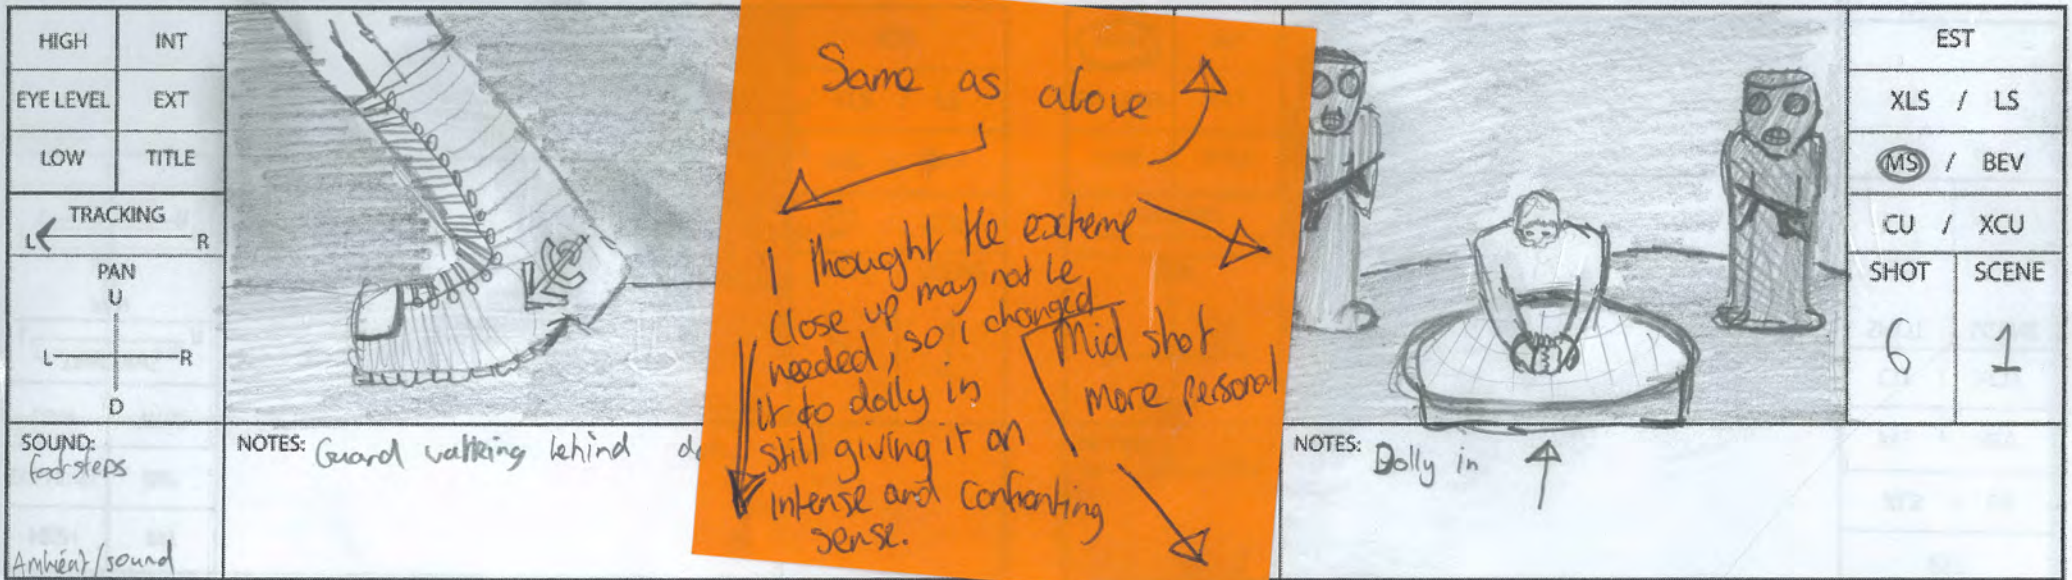 HIGH INT
EYE LEVEL EXT
LOW TITLE
TRACKING
L R
PAN
U
L R
D
SOUND:
footsteps
Ambient/sound
NOTES: Guard walking behind
Same as above
I thought the extreme
close up may not be
needed, so i changed
it to dolly in
still giving it an
intense and confronting
sense.
Mid shot
more personal
NOTES: Dolly in
EST
XLS / LS
MS / BEV
CU / XCU
SHOT SCENE
6 1